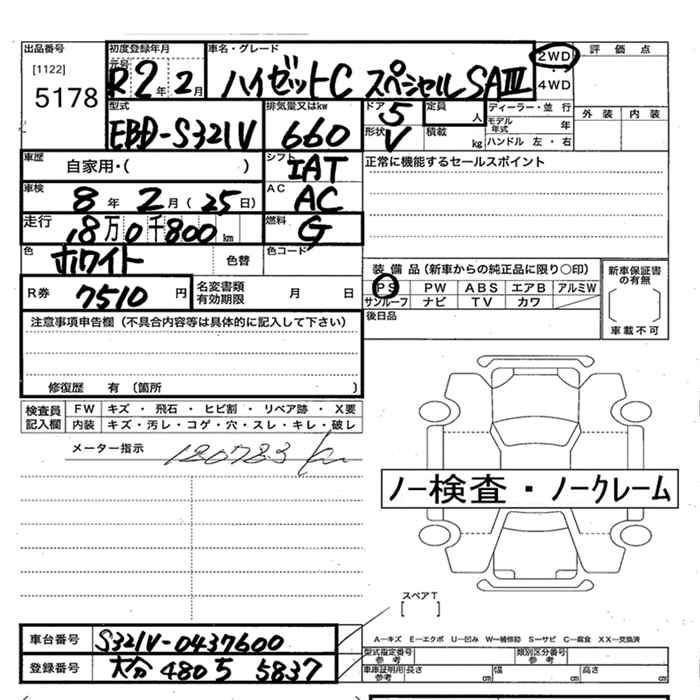 出品番号
[1122]
5178
初度登録年月
元号 R2年 2月
車名・グレード
ハイゼットC スペシャルSAⅢ
2WD
・
4WD
評価点
外装 内装
型式
EBD-S321V
排気量又はkw
660
ドア 5
形状 V
定員 人
積載 kg
ディーラー・並行
モデル年式 年
ハンドル 左・右
車歴 自家用・( )
シフト IAT
正常に機能するセールスポイント
車検 8年 2月(25日)
AC AC
走行 18万0千800km
燃料 G
色 ホワイト 色替
色コード
R券 7510円
名変書類有効期限 月 日
装備品(新車からの純正品に限り○印)
PS PW ABS エアB アルミW
サンルーフ ナビ TV カワ
後日品
新車保証書の有無
車載不可
注意事項申告欄(不具合内容等は具体的に記入して下さい)
修復歴 有(箇所 )
検査員記入欄
FW キズ・飛石・ヒビ割・リペア跡・X要
内装 キズ・汚レ・コゲ・穴・スレ・キレ・破レ
メーター指示 180783km
ノー検査・ノークレーム
スペアT
[ ]
A―キズ E―エクボ U―凹み W―補修跡 S―サビ C―腐食 XX―交換済
車台番号 S321V-0437600
登録番号 大分 480 ち 5837
型式指定番号 参考
類別区分番号 参考
車庫証明用 参考 長さ cm 幅 cm 高さ cm